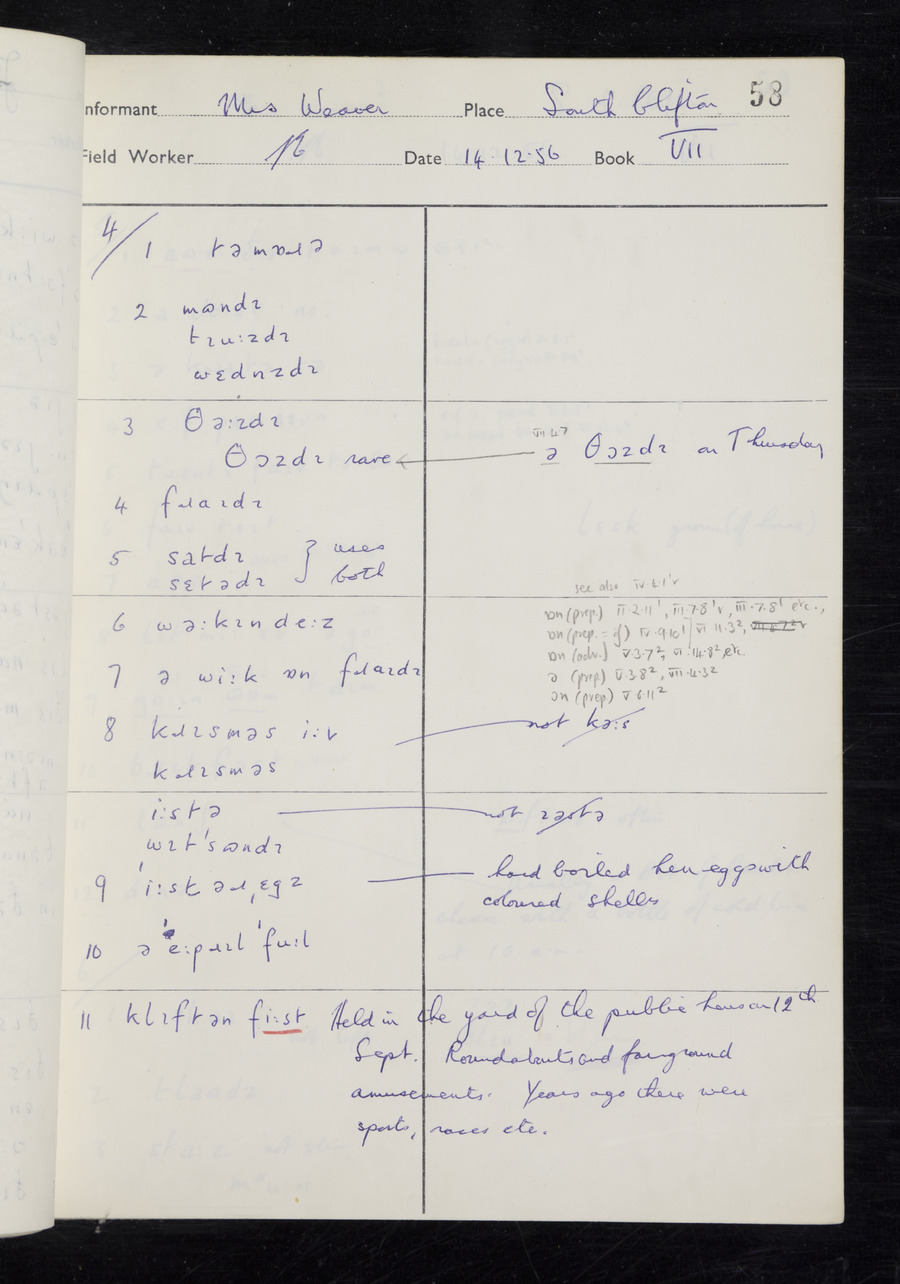 Informant Mrs Weaver Place South Clifton 58
Field Worker Date 14.12.56 Book VII
4/
1 təmɒɹə
2 mɷndɪ
tɪuːzdɪ
wɛdnzdɪ
3 θəːzdɪ
θəzdɪ rare
VII.4.7
ə θəzdɪ on Thursday
4 fɹaɪdɪ
5 satdɪ } uses
sɛtədɪ both
see also IV.6.1'r
6 wəːkɪndeːz
ɒn (prep) II.2.11', III.7.8'r, III.7.8' etc.,
ɒn (prep. = of) IV.9.10' VI.11.3²,
ɒn (adv.) V.3.7², VI.14.8², etc.
7 ə wiːk ɒn fɹaɪdɪ
ə (prep) V.3.8², VII.4.3²
ən (prep) V.6.11²
8 kɹɪsməs iːv
not kəːs
kɹɪsməs
iːstə not
wɪt'sɷndɪ
9 'iːstəɹˌɛgz hard boiled hen-eggs with
coloured shells
10 ə 'eːpɹɪl 'fuːl
11 klɪftən fiːst Held in the yard of the public house on 12th
Sept. Roundabouts and fairground
amusements. Years ago there were
sports, races etc.